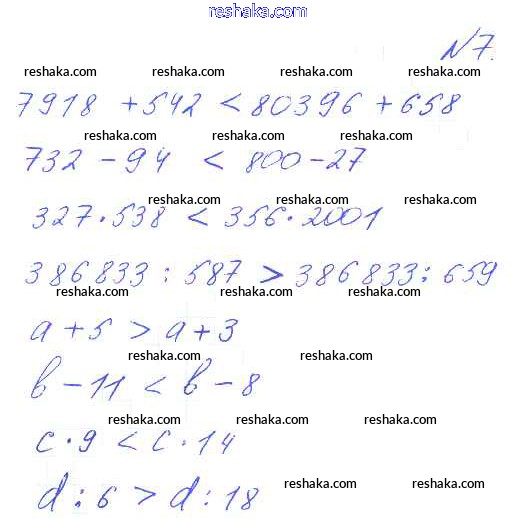 www.reshaka.com
№7.
reshaka.com reshaka.com reshaka.com
7918 + 542 < 80396 + 658
reshaka.com reshaka.com
732 - 94 < 800 - 27
reshaka.com reshaka.com reshaka.com
327 · 538 < 356 · 2001
386833 : 587 > 386833 : 659
reshaka.com reshaka.com reshaka.com
a + 5 > a + 3
reshaka.com reshaka.com
b - 11 < b - 8
reshaka.com reshaka.com reshaka.com
c · 9 < c · 14
reshaka.com reshaka.com
d : 6 > d : 18